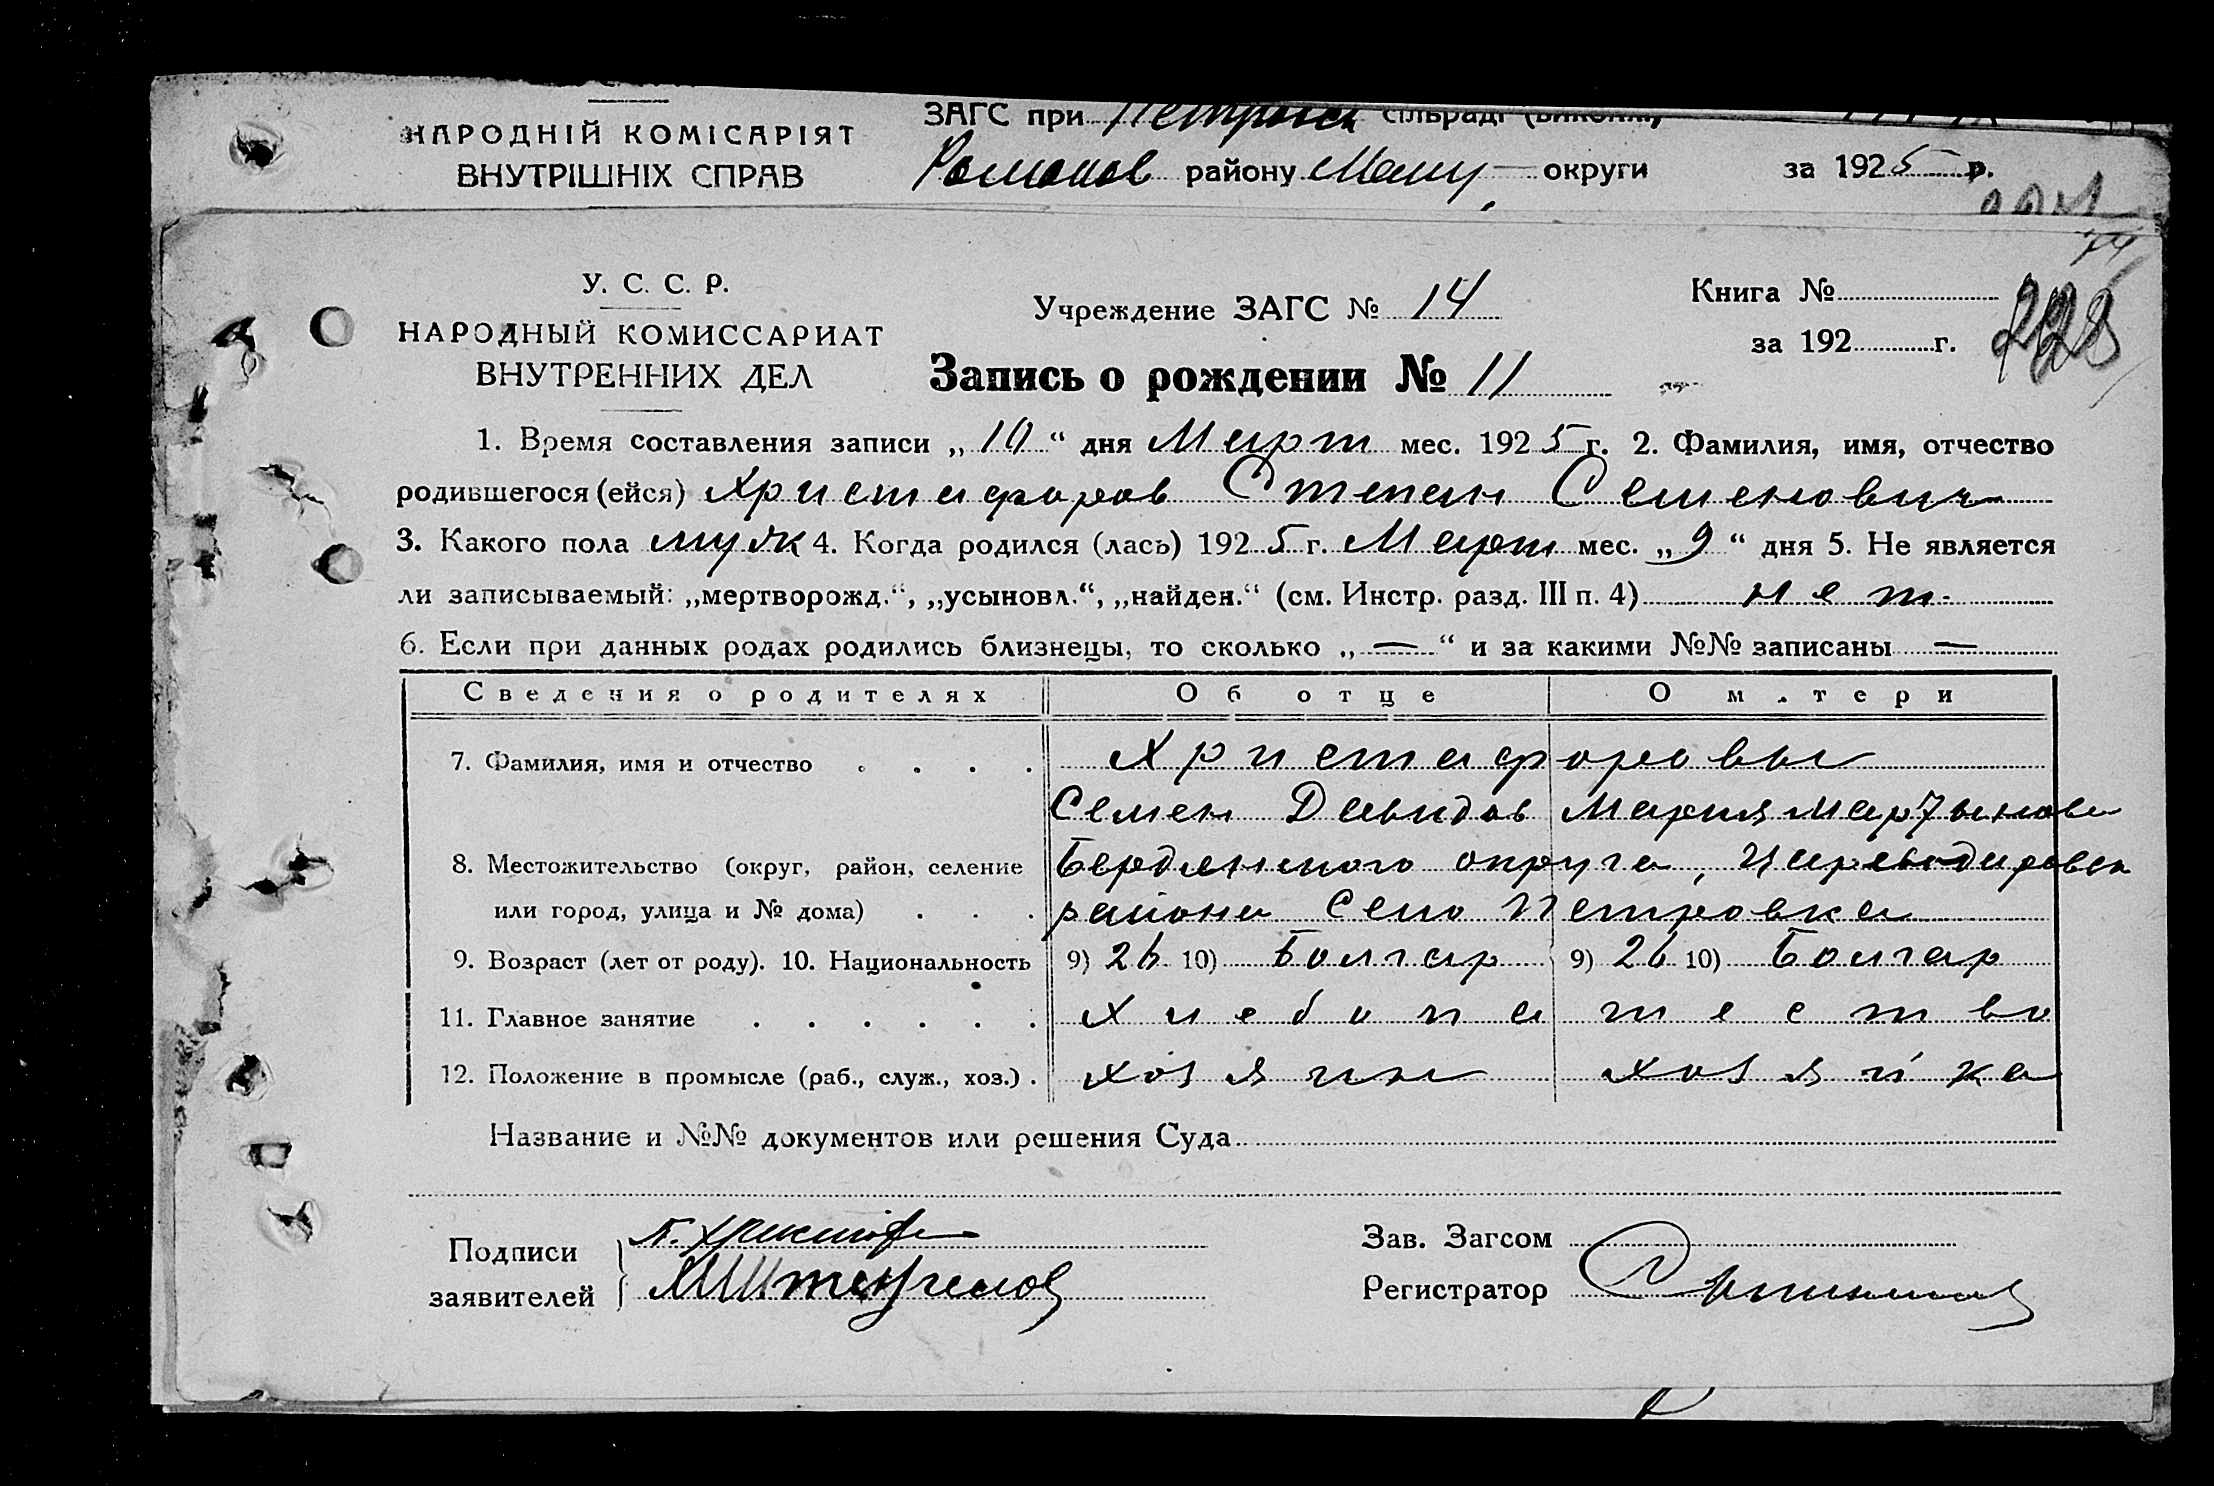 ЗАГС при Петровск сільраді
НАРОДНІЙ КОМІСАРІЯТ
ВНУТРІШНІХ СПРАВ
Романов району округи за 1925 р.
У. С. С. Р.
НАРОДНЫЙ КОМИССАРИАТ
ВНУТРЕННИХ ДЕЛ
Учреждение ЗАГС № 14
Книга №
за 192 г.
228
Запись о рождении № 11
1. Время составления записи „10“ дня Март мес. 1925 г. 2. Фамилия, имя, отчество
родившегося (ейся) Христафоров Степан Семенович
3. Какого пола муж 4. Когда родился (лась) 1925 г. Март мес. „9“ дня 5. Не является
ли записываемый: „мертворожд.“, „усыновл.“, „найден.“ (см. Инстр. разд. III п. 4) нет.
6. Если при данных родах родились близнецы, то сколько „—“ и за какими №№ записаны —
Сведения о родителях Об отце О м.тери
7. Фамилия, имя и отчество . . . . Христафоровы
Семен Давидов Мария Мартынова
8. Местожительство (округ, район, селение Бердянского округа,
или город, улица и № дома) . . . района Село Петровка
9. Возраст (лет от роду). 10. Национальность 9) 26 10) Болгар 9) 26 10) Болгар
11. Главное занятие . . . . . . Хлебопашество
12. Положение в промысле (раб., служ., хоз.) . хозяин хозяйка
Название и №№ документов или решения Суда
Подписи
заявителей
Зав. Загсом
Регистратор